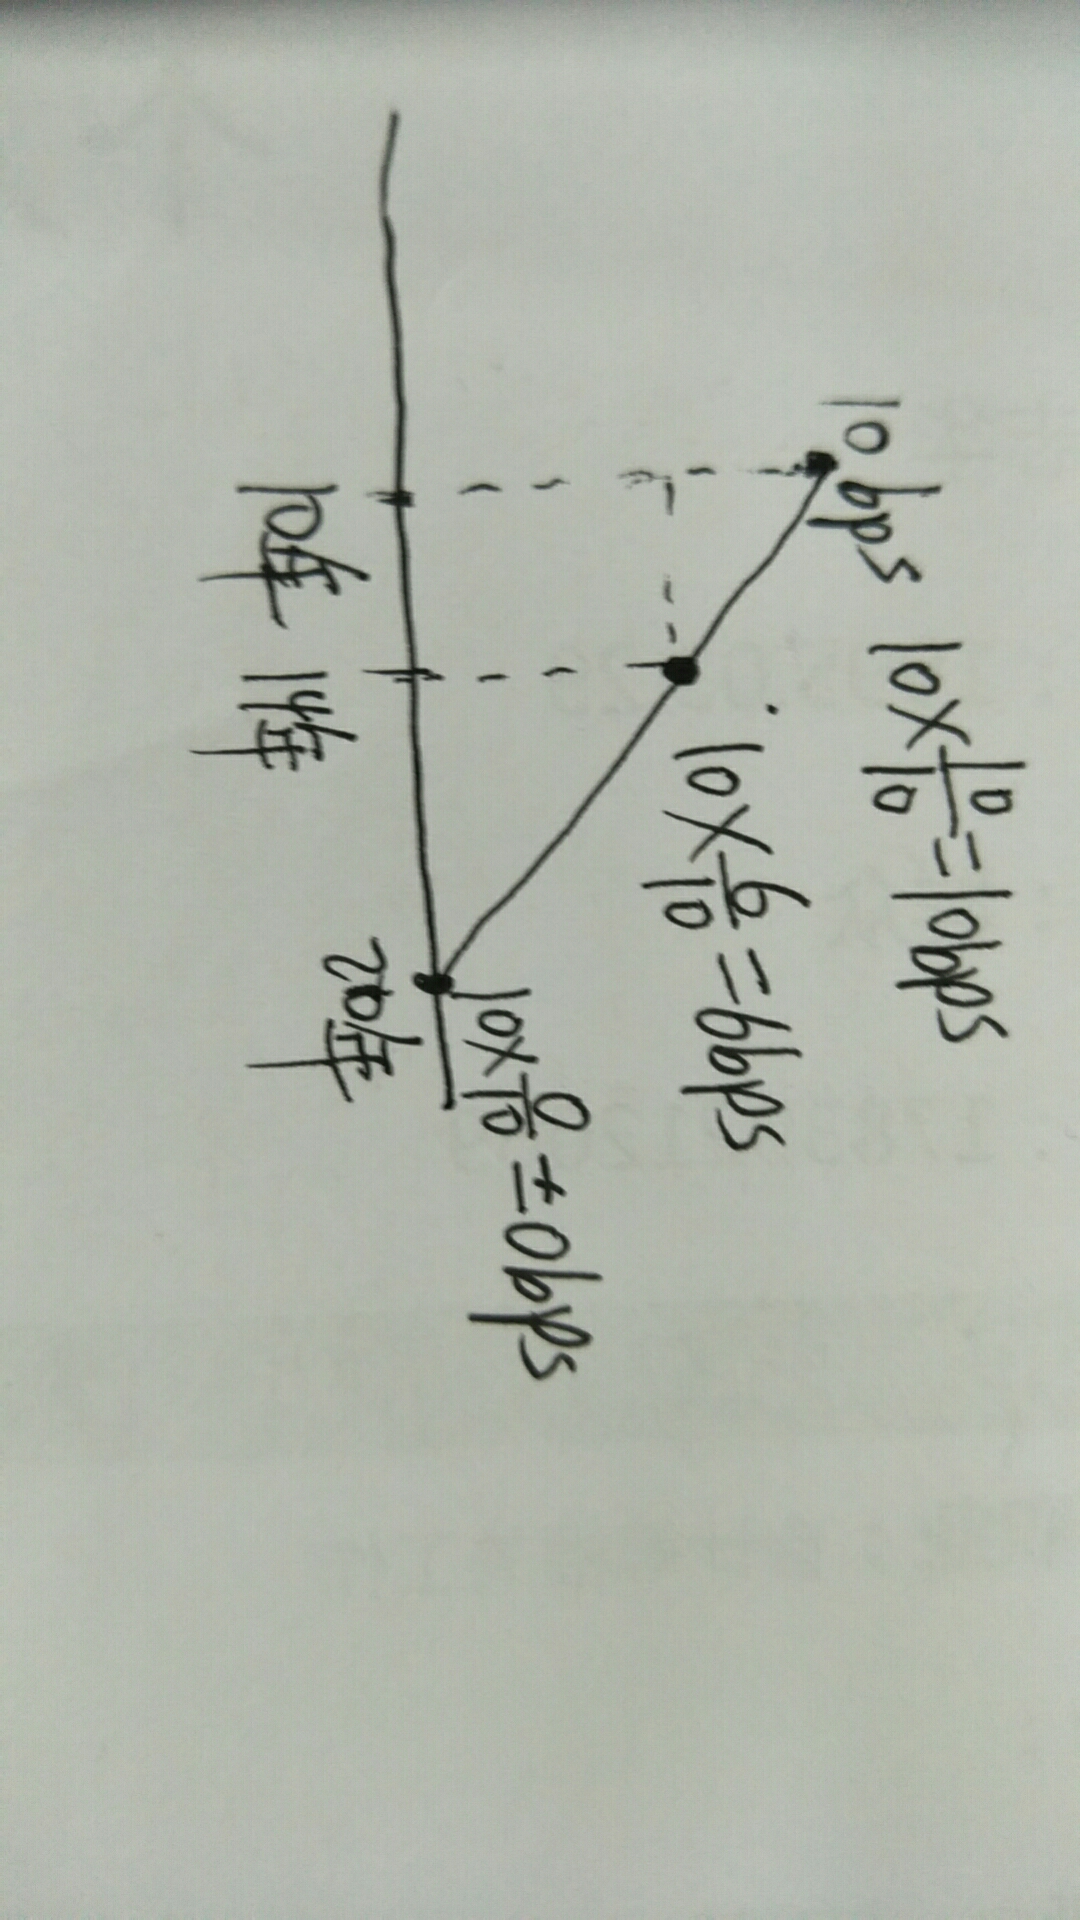 10 bps
10×10/10=10bps
10×6/10=6bps
10×0/10=±0bps
10年
14年
20年